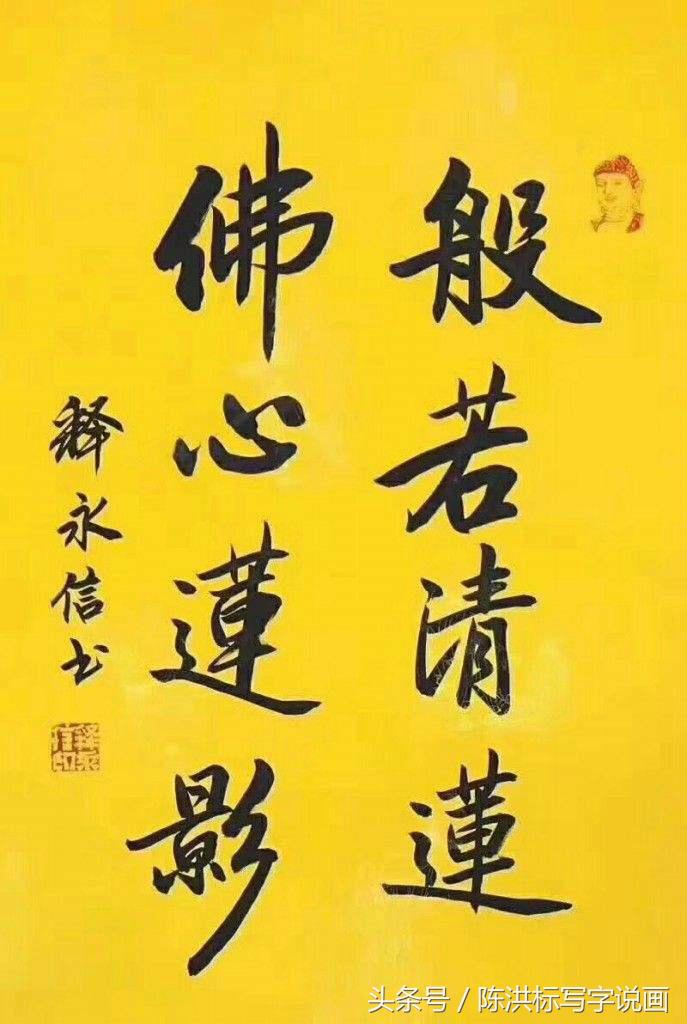 般若清蓮
佛心蓮影
释永信书
头条号 / 陈洪标写字说画